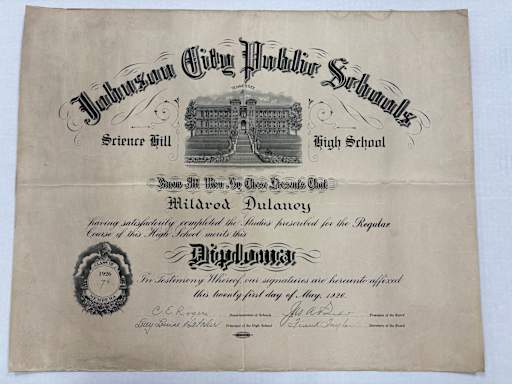 Johnson City Public Schools
TENNESSEE
Science Hill High School
Know All Men By These Presents That
Mildred Dulaney
having satisfactorily completed the Studies prescribed for the Regular
Course of this High School merits this
Diploma
In Testimony Whereof, our signatures are hereunto affixed
this twenty first day of May, 1926.
CLASS OF
1926
C. E. Rogers Superintendent of Schools President of the Board
Principal of the High School Frank Taylor Secretary of the Board